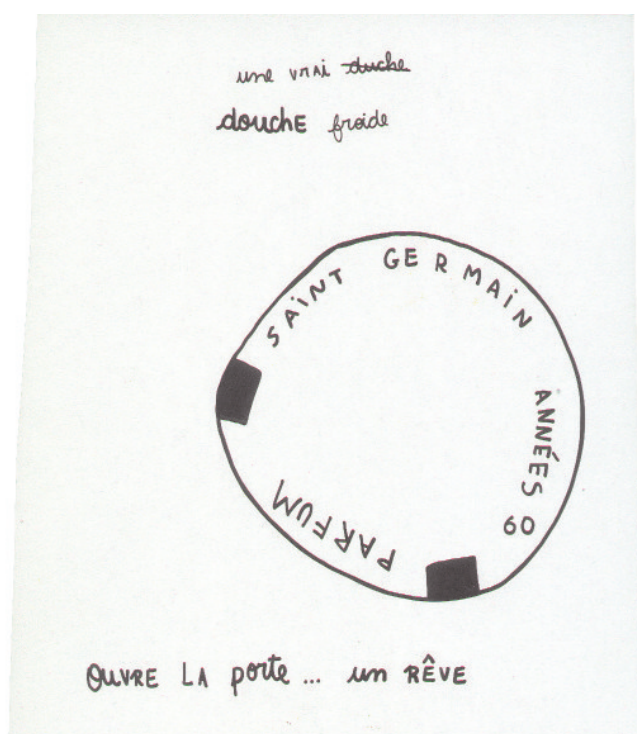 une vrai duche
douchE froide
SAiNT GERMAiN ANNÉES 60
PARFUM
OUVRE LA porte ... un RÊVE